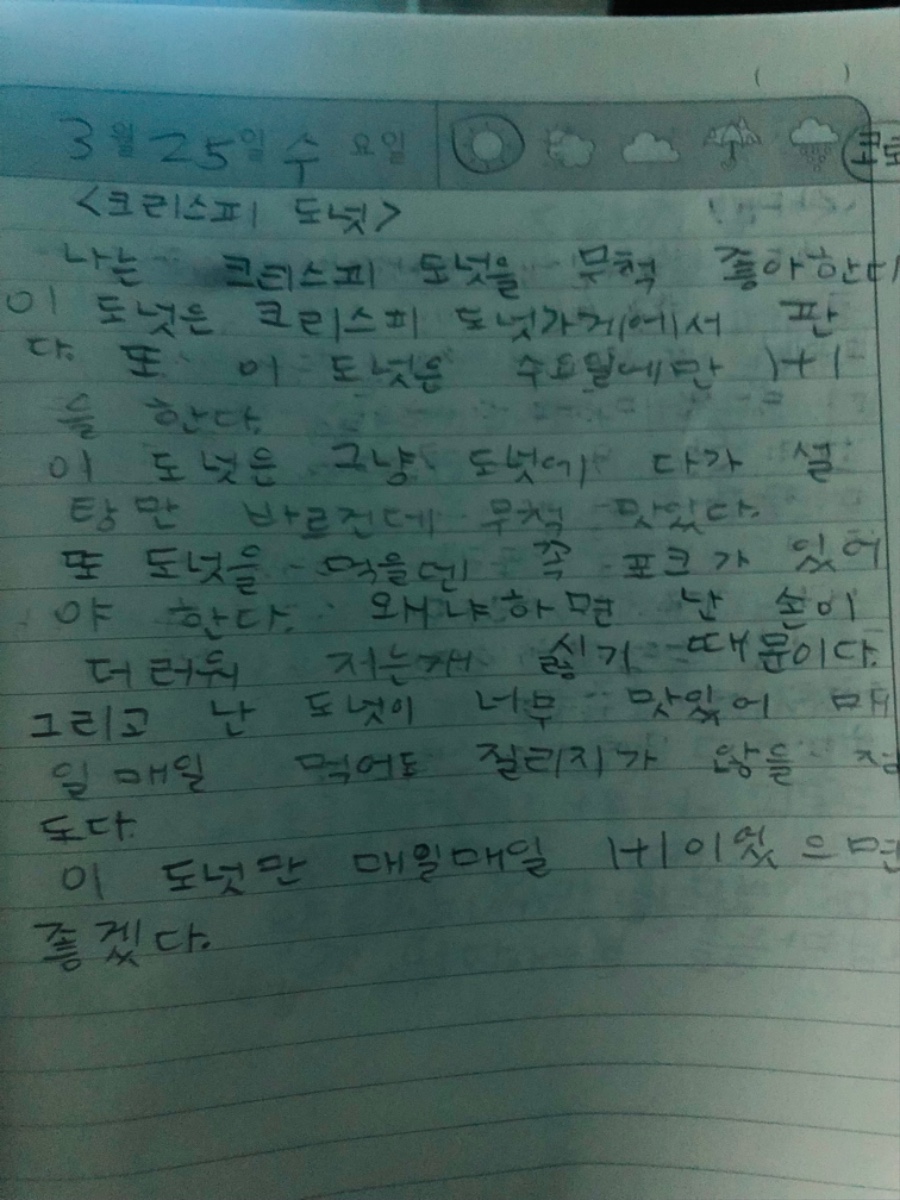 ( )
3월 25일 수요일
<크리스피 도넛>
나는 크리스피 도넛을 무척 좋아한다
이 도넛은 크리스피 도넛가게에서 판
다. 또 이 도넛은 수요일에만 1+1
을 한다.
이 도넛은 그냥 도넛에 다가 설
탕만 바르건데 무척 맛있다.
또 도넛을 먹을덴 꼭 포크가 있어
야 한다. 왜냐하면 난 손이
더러워 저는개 싫기 때문이다.
그리고 난 도넛이 너무 맛있어 매
일매일 먹어도 질리지가 않을 정
도다.
이 도넛만 매일매일 1+1이었으면
좋겠다.